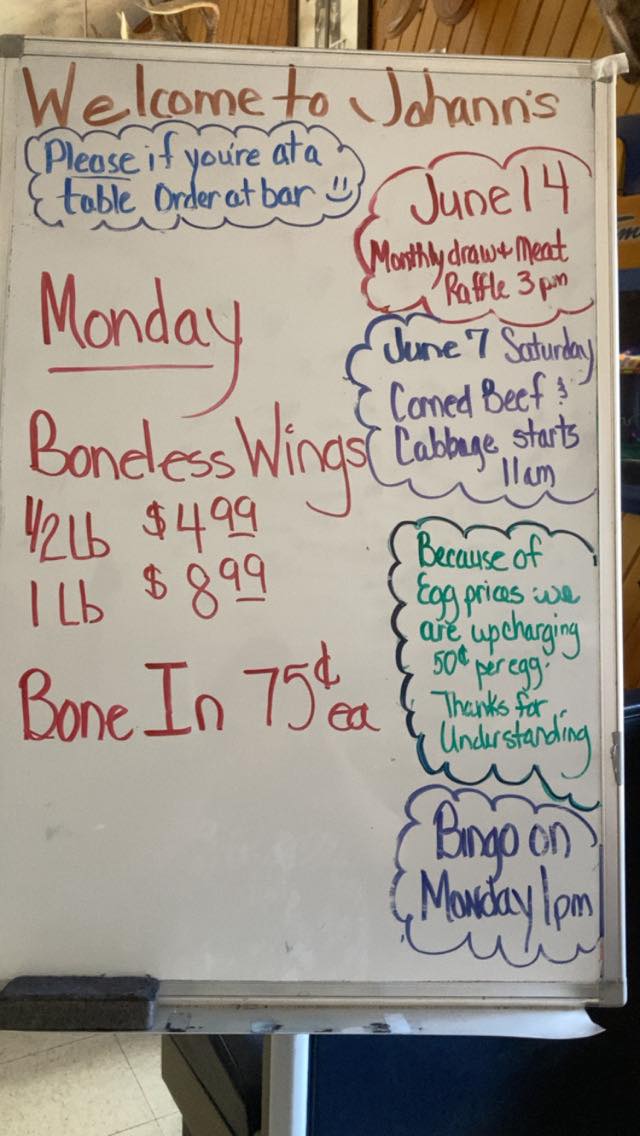 Welcome to Johann's
Please if you're at a
table Order at bar
Monday
Boneless Wings
1/2 Lb $4.99
1 Lb $8.99
Bone In 75¢ ea
June 14
Monthly draw + Meat
Raffle 3 pm
June 7 Saturday
Corned Beef &
Cabbage starts
11am
Because of
Egg prices we
are upcharging
50¢ per egg.
Thanks for
Understanding
Bingo on
Monday 1pm